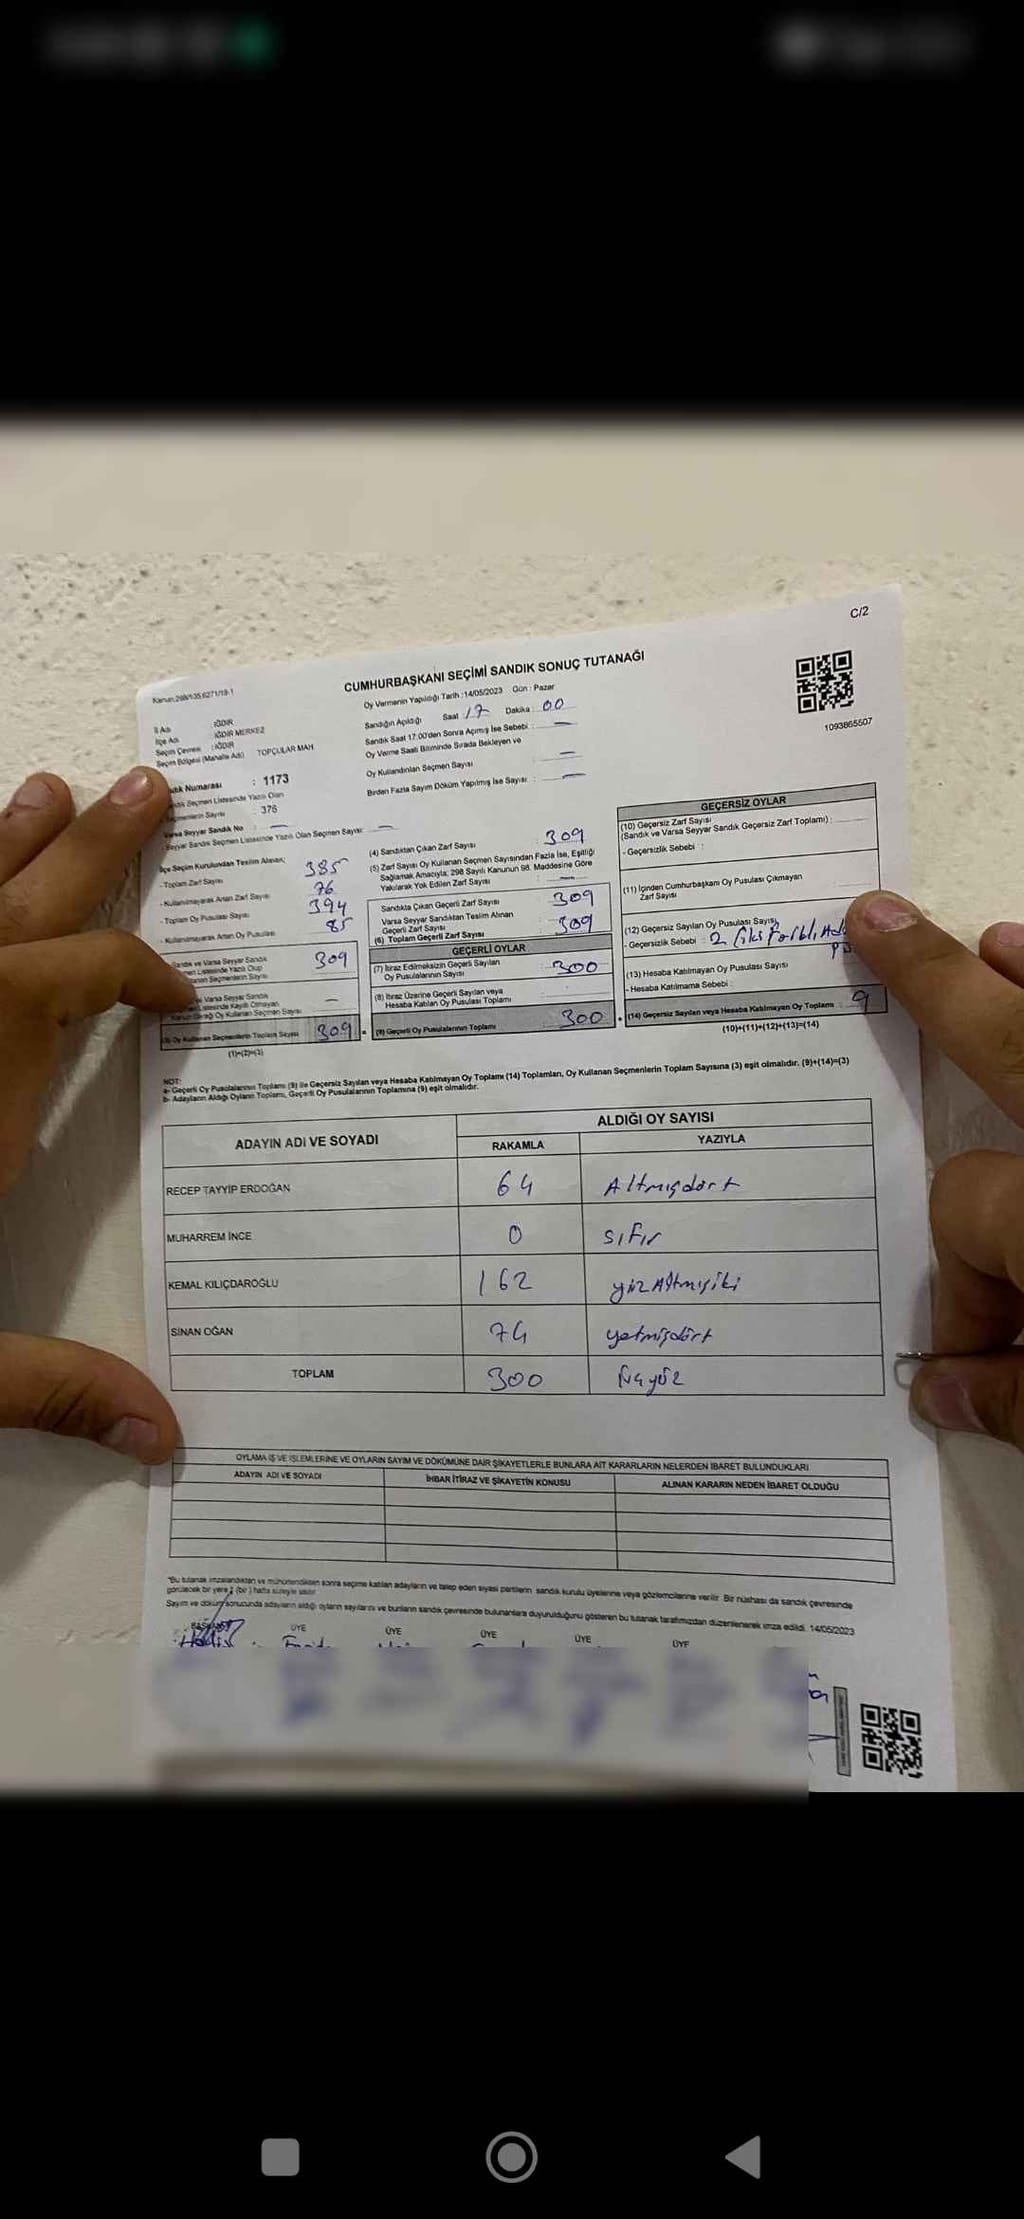 C/2
CUMHURBAŞKANI SEÇİMİ SANDIK SONUÇ TUTANAĞI
Kanun:298/135,6271/19-1
Oy Vermenin Yapıldığı Tarih :14/05/2023 Gün : Pazar
İl Adı : IĞDIR
İlçe Adı : IĞDIR MERKEZ
Seçim Çevresi : IĞDIR
Seçim Bölgesi (Mahalle Adı) TOPÇULAR MAH
Numarası : 1173
Seçmen Listesinde Yazılı Olan
Sayısı : 376
Varsa Seyyar Sandık No :
Seyyar Sandık Seçmen Listesinde Yazılı Olan Seçmen Sayısı:
İlçe Seçim Kurulundan Teslim Alınan;
- Toplam Zarf Sayısı 385
- Kullanılmayarak Artan Zarf Sayısı 76
- Toplam Oy Pusulası Sayısı 394
- Kullanılmayarak Artan Oy Pusulası 85
Sandık ve Varsa Seyyar Sandık
Listesinde Yazılı Olup
Seçmenlerin Sayısı 309
Varsa Seyyar Sandık
Listesinde Kayıtlı Olmayan
Oy Kullanan Seçmen Sayısı
(3) Oy Kullanan Seçmenlerin Toplam Sayısı 309
(1)+(2)=(3)
Sandığın Açıldığı Saat 17 Dakika : 00
Sandık Saat 17:00'den Sonra Açımış İse Sebebi :
Oy Verme Saati Bitiminde Sırada Bekleyen ve
Oy Kullandırılan Seçmen Sayısı :
Birden Fazla Sayım Döküm Yapılmış İse Sayısı :
(4) Sandıktan Çıkan Zarf Sayısı : 309
(5) Zarf Sayısı Oy Kullanan Seçmen Sayısından Fazla İse, Eşitliği
Sağlamak Amacıyla; 298 Sayılı Kanunun 98. Maddesine Göre
Yakılarak Yok Edilen Zarf Sayısı :
Sandıkta Çıkan Geçerli Zarf Sayısı : 309
Varsa Seyyar Sandıktan Teslim Alınan
Geçerli Zarf Sayısı
(6) Toplam Geçerli Zarf Sayısı : 309
GEÇERLİ OYLAR
(7) İtiraz Edilmeksizin Geçerli Sayılan
Oy Pusulalarının Sayısı : 300
(8) İtiraz Üzerine Geçerli Sayılan veya
Hesaba Katılan Oy Pusulası Toplamı :
(9) Geçerli Oy Pusulalarının Toplamı 300
1093865507
GEÇERSİZ OYLAR
(10) Geçersiz Zarf Sayısı
(Sandık ve Varsa Seyyar Sandık Geçersiz Zarf Toplamı) :
- Geçersizlik Sebebi :
(11) İçinden Cumhurbaşkanı Oy Pusulası Çıkmayan
Zarf Sayısı
(12) Geçersiz Sayılan Oy Pusulası Sayısı
- Geçersizlik Sebebi : 2
(13) Hesaba Katılmayan Oy Pusulası Sayısı
- Hesaba Katılmama Sebebi :
(14) Geçersiz Sayılan veya Hesaba Katılmayan Oy Toplamı : 9
(10)+(11)+(12)+(13)=(14)
NOT:
a- Geçerli Oy Pusulalarının Toplamı (9) ile Geçersiz Sayılan veya Hesaba Katılmayan Oy Toplamı (14) Toplamları, Oy Kullanan Seçmenlerin Toplam Sayısına (3) eşit olmalıdır. (9)+(14)=(3)
b- Adayların Aldığı Oyların Toplamı, Geçerli Oy Pusulalarının Toplamına (9) eşit olmalıdır.
ADAYIN ADI VE SOYADI
ALDIĞI OY SAYISI
RAKAMLA YAZIYLA
RECEP TAYYİP ERDOĞAN 64 Altmışdört
MUHARREM İNCE 0 sıfır
KEMAL KILIÇDAROĞLU 162 yüzAltmışiki
SİNAN OĞAN 74 yetmişdört
TOPLAM 300 üçyüz
OYLAMA İŞ VE İŞLEMLERİNE VE OYLARIN SAYIM VE DÖKÜMÜNE DAİR ŞİKAYETLERLE BUNLARA AİT KARARLARIN NELERDEN İBARET BULUNDUKLARI
ADAYIN ADI VE SOYADI İHBAR İTİRAZ VE ŞİKAYETİN KONUSU ALINAN KARARIN NEDEN İBARET OLDUĞU
*Bu tutanak imzalandıktan ve mühürlendikten sonra seçime katılan adayların ve talep eden siyasi partilerin sandık kurulu üyelerine veya gözlemcilerine verilir. Bir nüshası da sandık çevresinde
görülecek bir yere 1 (bir) hafta süreyle asılır.
Sayım ve döküm sonucunda adayların aldığı oyların sayılarını ve bunların sandık çevresinde bulunanlara duyurulduğunu gösteren bu tutanak tarafımızdan düzenlenerek imza edildi. 14/05/2023
BAŞKAN ÜYE ÜYE ÜYE ÜYE ÜYE